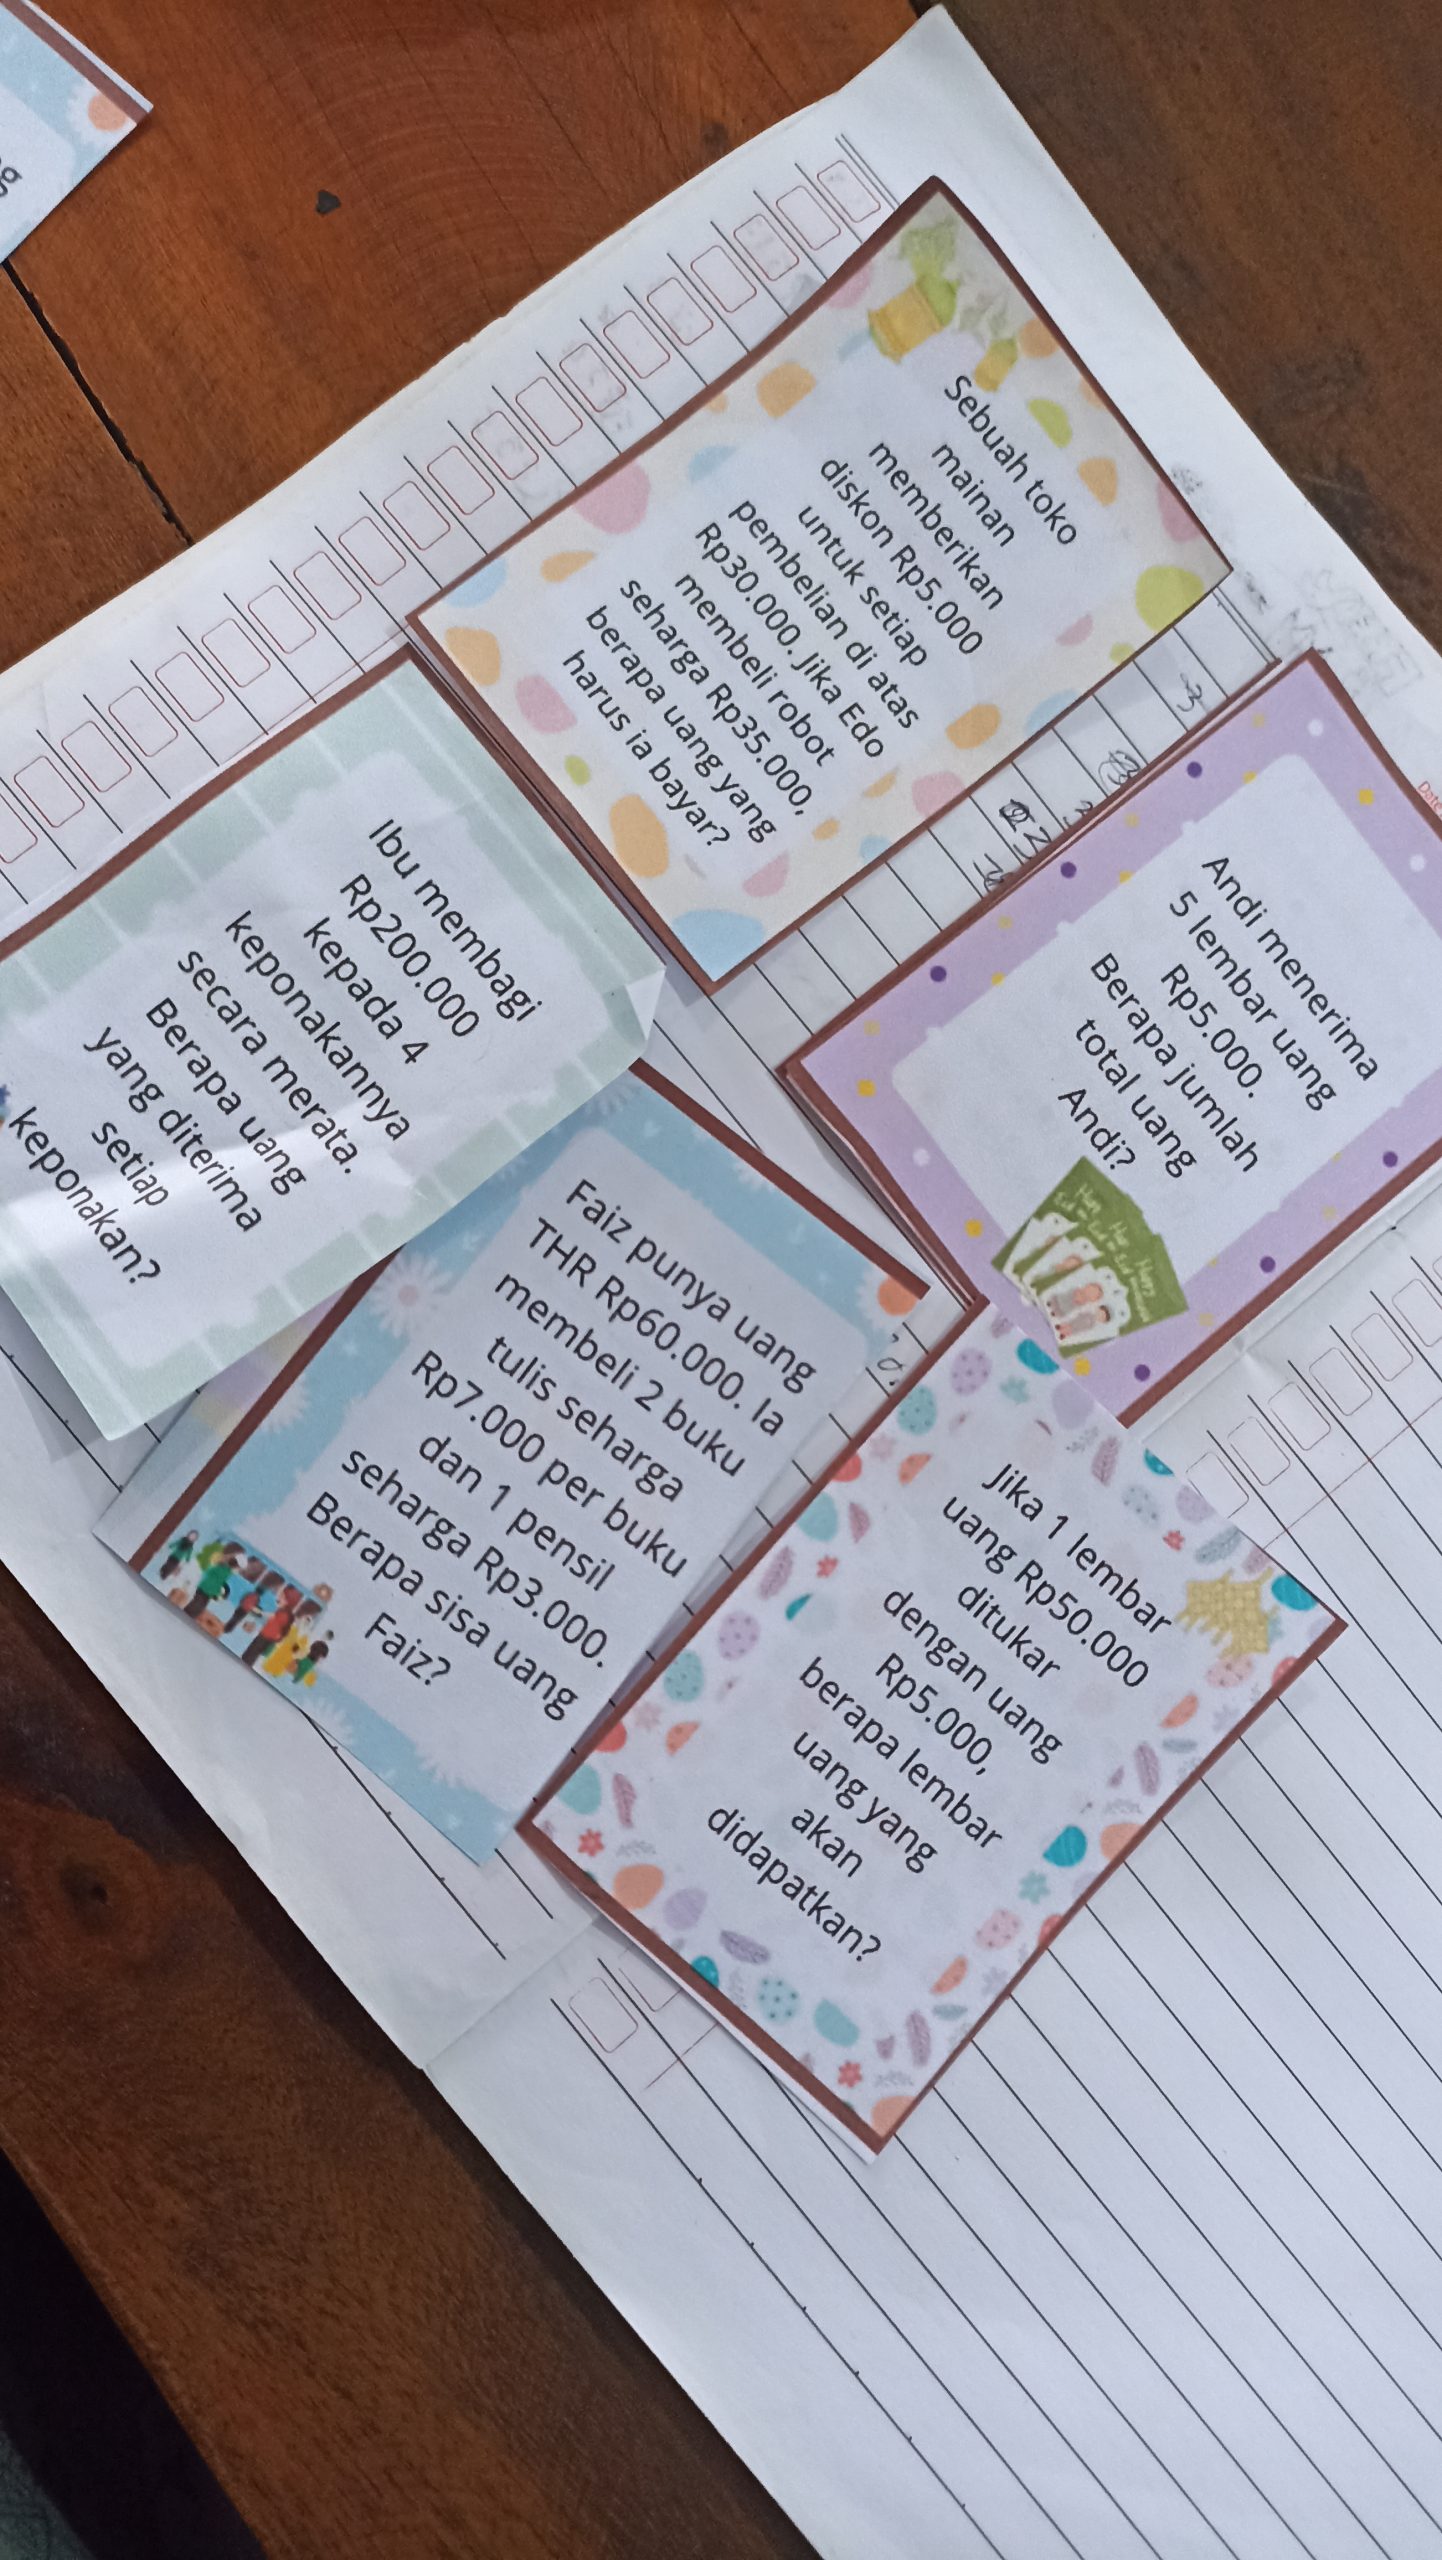 Sebuah toko
mainan
memberikan
diskon Rp5.000
untuk setiap
pembelian di atas
Rp30.000. Jika Edo
membeli robot
seharga Rp35.000,
berapa uang yang
harus ia bayar?
Andi menerima
5 lembar uang
Rp5.000.
Berapa jumlah
total uang
Andi?
Ibu membagi
Rp200.000
kepada 4
keponakannya
secara merata.
Berapa uang
yang diterima
setiap
keponakan?
Faiz punya uang
THR Rp60.000. Ia
membeli 2 buku
tulis seharga
Rp7.000 per buku
dan 1 pensil
seharga Rp3.000.
Berapa sisa uang
Faiz?
Jika 1 lembar
uang Rp50.000
ditukar
dengan uang
Rp5.000,
berapa lembar
uang yang
akan
didapatkan?
Date